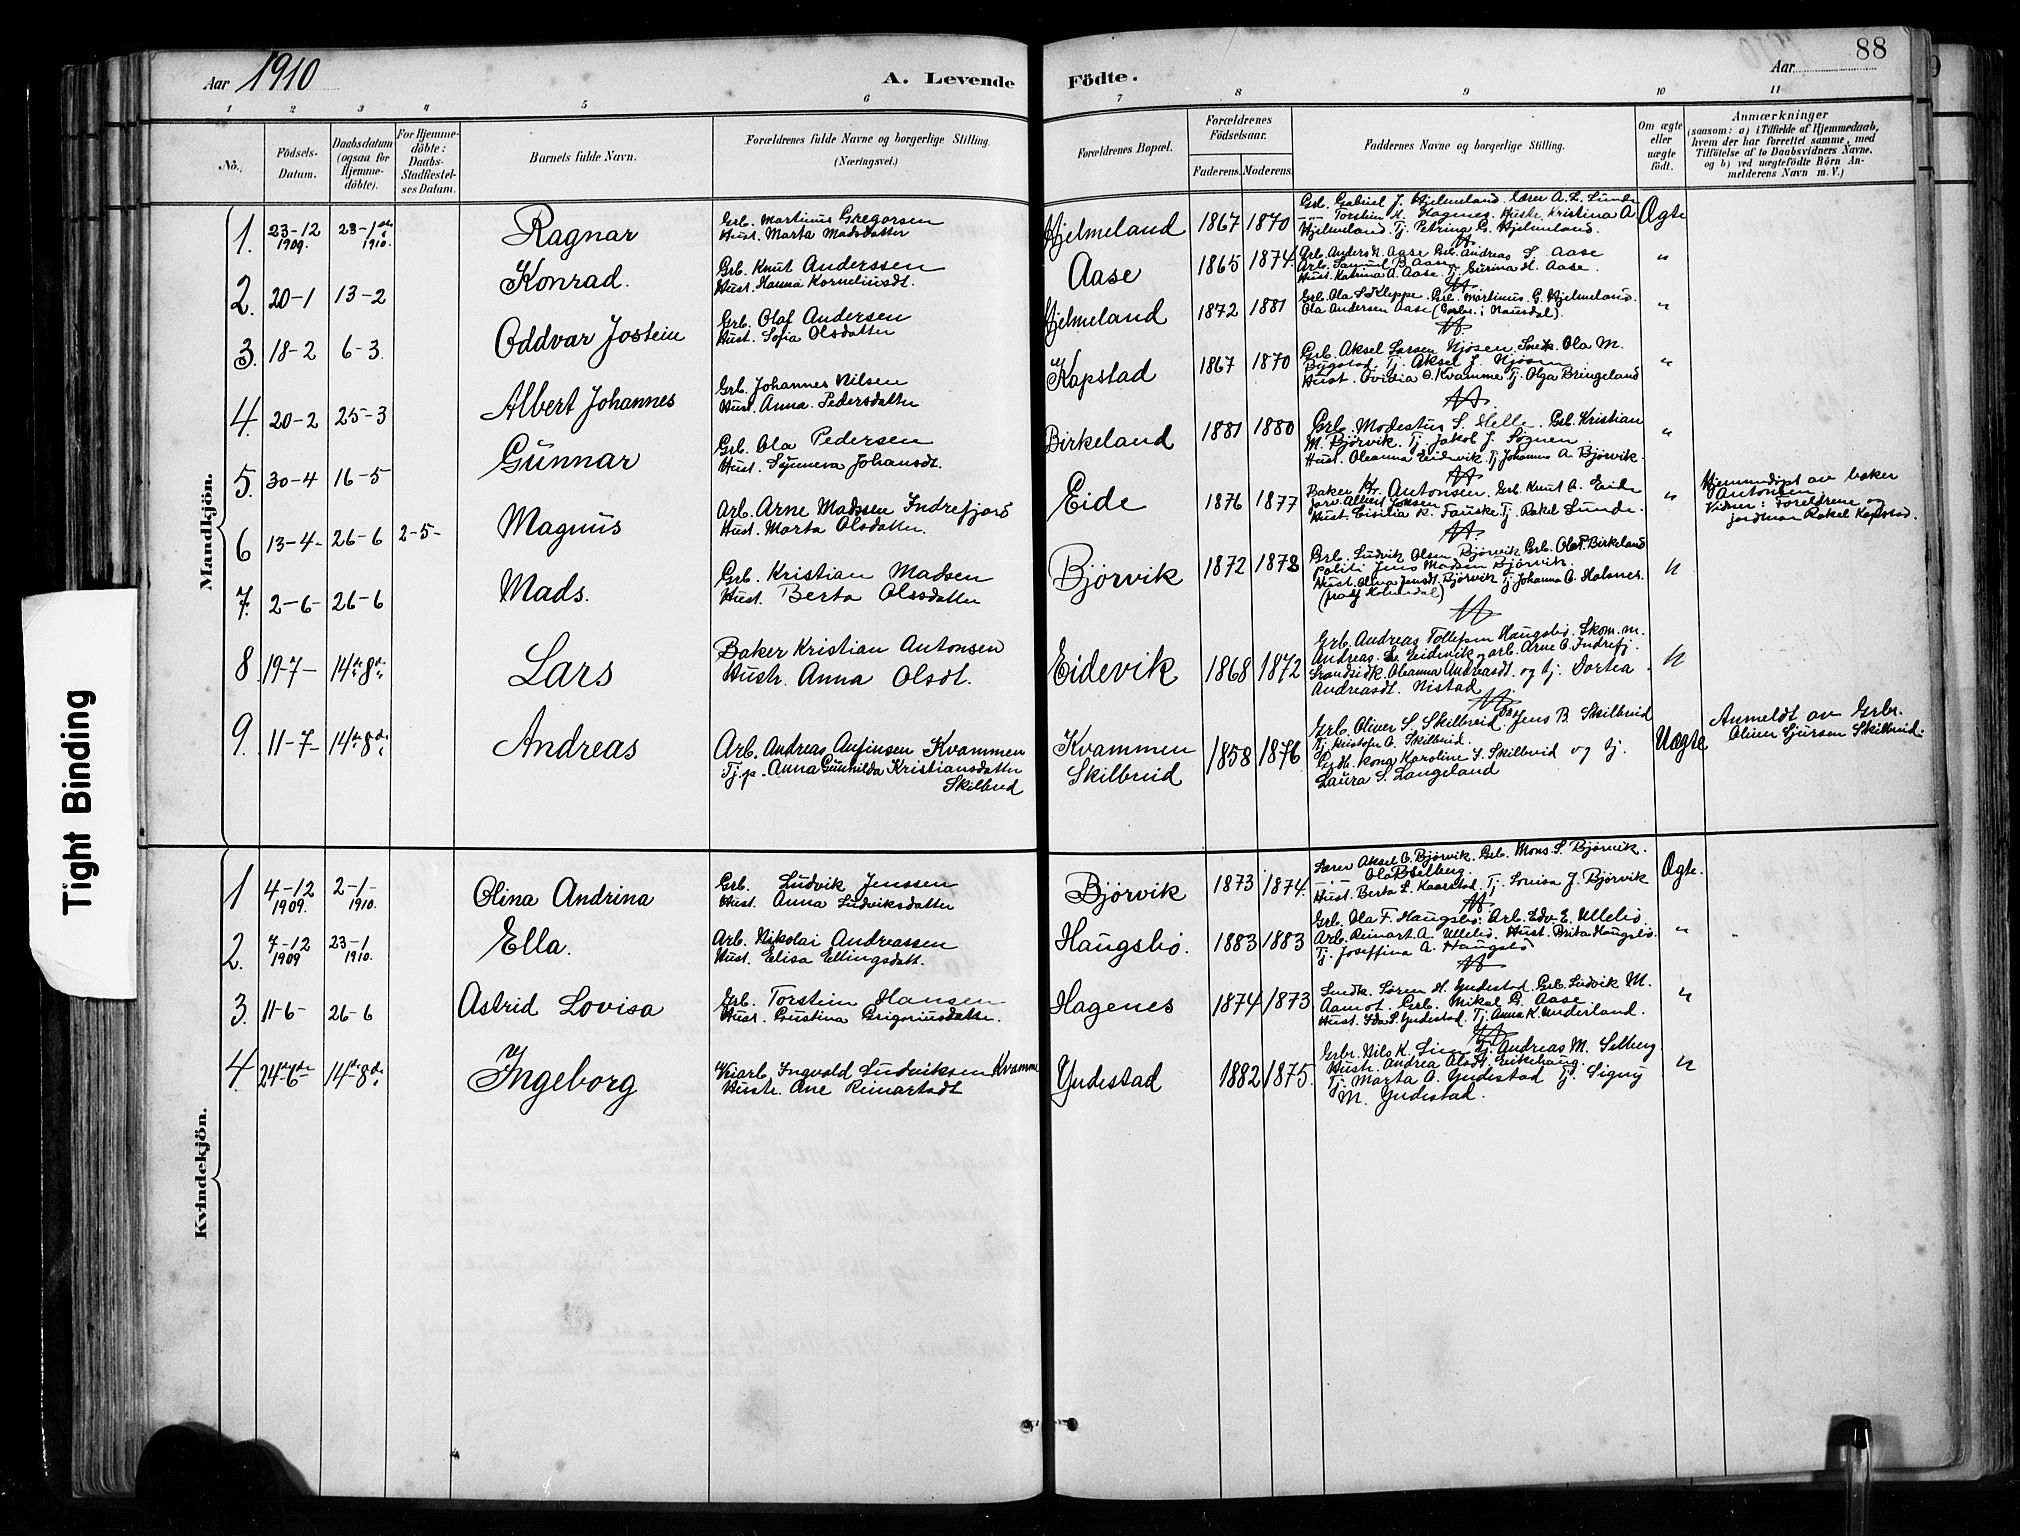 Aar 1910
A. Levende
Födte.
Aar
88
1 2 3 4 5 6 7 8 9 10 11
No.
Födsels-
Datum.
Daabsdatum
(ogsaa for
Hjemme-
döbte).
For Hjemme-
döbte:
Daabs-
Stadfæstel-
ses Datum.
Barnets fulde Navn.
Forældrenes fulde Navne og borgerlige Stilling.
(Næringsvei.)
Forældrenes Bopæl.
Forældrenes
Födselsaar.
Faderens.
Moderens.
Faddernes Navne og borgerlige Stilling.
Om ægte
eller
uægte
födt.
Anmærkninger
(saasom: a) i Tilfælde af Hjemmedaab,
hvem der har forrettet samme, med
Tilföielse af to Daabsvidners Navne,
og b) ved uægtefödte Börn An-
melderens Navn m. V.)
Mandkjön.
1. 23-12 1909. 23-1 1910. Ragnar
Grb. Martinus Gregorsen
Hust. Marta Madsdatter
Hjelmeland 1867 1870
Grb. Gabriel J. Hjelmeland. Lærer A. L. Lunde
Torstein H. Hagenes. Hustr. Kristina A.
Hjelmeland. Tj. Petrina G. Hjelmeland.
Ægte
2. 20-1 13-2 Konrad.
Grb. Knut Anderssen
Hust. Hanna Korneliusdt.
Aase 1865 1874.
Grb. Anders K. Aase Grb. Andreas S. Aase
Arb. Samuel B. Aase
Hust. Katrina A. Aase. Tj. Gurina H. Aase.
"
3. 18-2 6-3. Oddvar Jostein
Grb. Olaf Andersen
Hust. Sofia Olsdatter
Hjelmeland 1872 1881
Grb. Ola S. Kleppe. Grb. Martinus G. Hjelmeland.
Ola Andersen Aase
"
4. 20-2 25-3 Albert Johannes
Grb. Johannes Nilsen
Hust. Anna Pedersdatter
Kapstad 1867 1870
Grb. Aksel Larsen Njøsen. Ola M.
Bygstad. Tj. Aksel L. Njøsen
Hust. Ovidia O. Kvamme Tj. Olga Bringeland
"
5. 30-4 16-5 Gunnar
Grb. Ola Pedersen
Hust. Synneva Johansdt.
Birkeland 1881 1880
Grb. Modestus S. Helle. Grb. Kristian
M. Bjørvik. Tj. Jakob J. Sognen.
Hust. Oleanna Eidevik. Tj. Johanna A. Bjørvik.
"
6 13-4- 26-6 2-5- Magnus
Arb. Arne Madssen Indrefjord
Hust. Marta Olsdatter.
Eide 1876 1877
Baker Kr. Antonsen. Grb. Knut A. Eide
Hust. Cisilia R. Fauske. Tj. Rakel Lunde.
"
Hjemmedøpt av baker
Antonsen
Vidner: Foreldrene og
jordmor Rakel Kapstad.
7. 2-6- 26-6 Mads.
Grb. Kristian Madsen
Hust. Berta Olsdatter
Bjørvik 1872 1878
Grb. Ludvik Olsen Bjørvik. Grb. Ola P. Birkeland
Politi Jens Madsen Bjørvik.
Hust. Olina Jensdt. Bjørvik Tj. Johanna O. Halsnes.
"
8 19-7- 14-8 Lars
Baker Kristian Antonsen
Hustr. Anna Olsdt.
Eidevik 1868 1872
Grb. Andreas Tollefsen Haugsbø. Skom. m.
Andreas Eidevik og arb. Arne O. Indrefj.
Oleanna Andreasdt. og tj. Dortea
Andreasdt. Nistad
"
9. 11-7- 14-8 Andreas
Arb. Andreas Anfinsen Kvammen
Tj. p. Anna Gunhilda Kristiansdatter
Skilbreid
Kvammen
Skilbreid
1858 1876
Grb. Oliver S. Skilbreid. Jens B. Skilbreid
Tj. Kristofer O. Skilbreid.
kona Karoline S. Skilbreid og tj.
Laura S. Langeland
Uægte
Anmeldt av Grbr.
Oliver Sjursen Skilbreid.
Kvindekjön.
1 4-12 1909. 2-1- 1910. Olina Andrina
Grb. Ludvik Jenssen
Hust. Anna Ludviksdatter
Bjørvik 1873 1874.
Lærer Aksel O. Bjørvik. Grb. Mons S. Bjørvik.
Ola B Selberg.
Hust. Berta L. Kaarstad. Tj. Lovisa J. Bjørvik
Ægte.
2. 7-12 1909 23-1 1910. Ella.
Arb. Nikolai Andreassen
Hust. Elisa Ellingsdatt.
Haugsbø. 1883 1883
Grb. Ola F. Haugsbø. Arb. Edv. E. Ullebø.
Arb. Reinart A. Ullebø. Hust. Brita Haugsbø.
Tj. Joseffina A. Haugsbø
"
3. 11-6- 26-6 Astrid Lovisa
Grb. Torstein Hansen
Hust. Gustina Grigoriusdatter.
Hagenes 1874 1873
Smedk. Søren H. Yndestad. Grb. Ludvik M.
Aamot. Grb. Mikal G. Aase.
Hust. Ida S. Yndestad. Tj. Anna K. Underland.
"
4. 24-6 14-8 Ingeborg
Veiarb. Ingvald Ludviksen Kvamme
Hustr. Ane Reinartsdt
Yndestad 1882 1875.
Grbr. Nils K. Lien Tj. Andreas M. Selberg.
Hustr. Andrea Olsdt. Eikehaug.
Tj. Marta A. Yndestad Tj. Signy
M. Yndestad.
"
Tight Binding